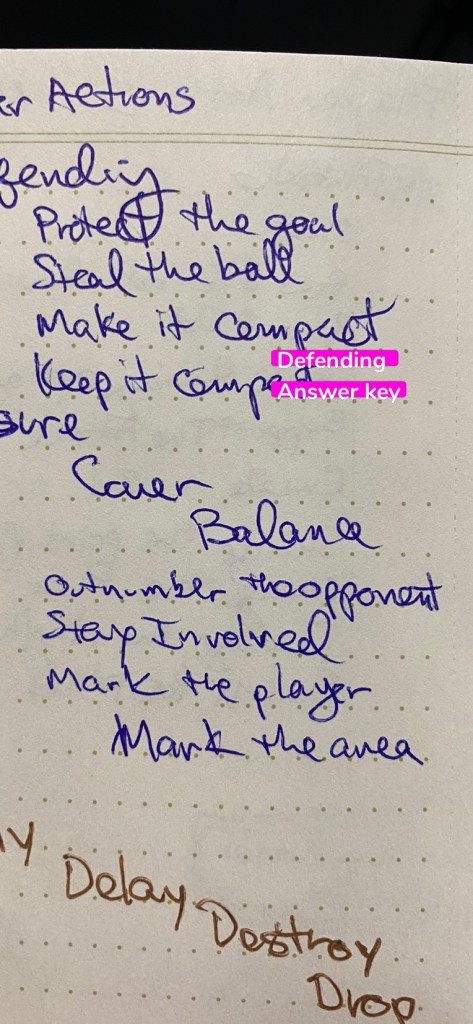 er Actions
fending
Protect the goal
Steal the ball
Make it Compact
Defending
Keep it Compact
Answer key
sure
Cover
Balance
Outnumber the opponent
Stay Involved
Mark the player
Mark the area
ay
Delay
Destroy
Drop